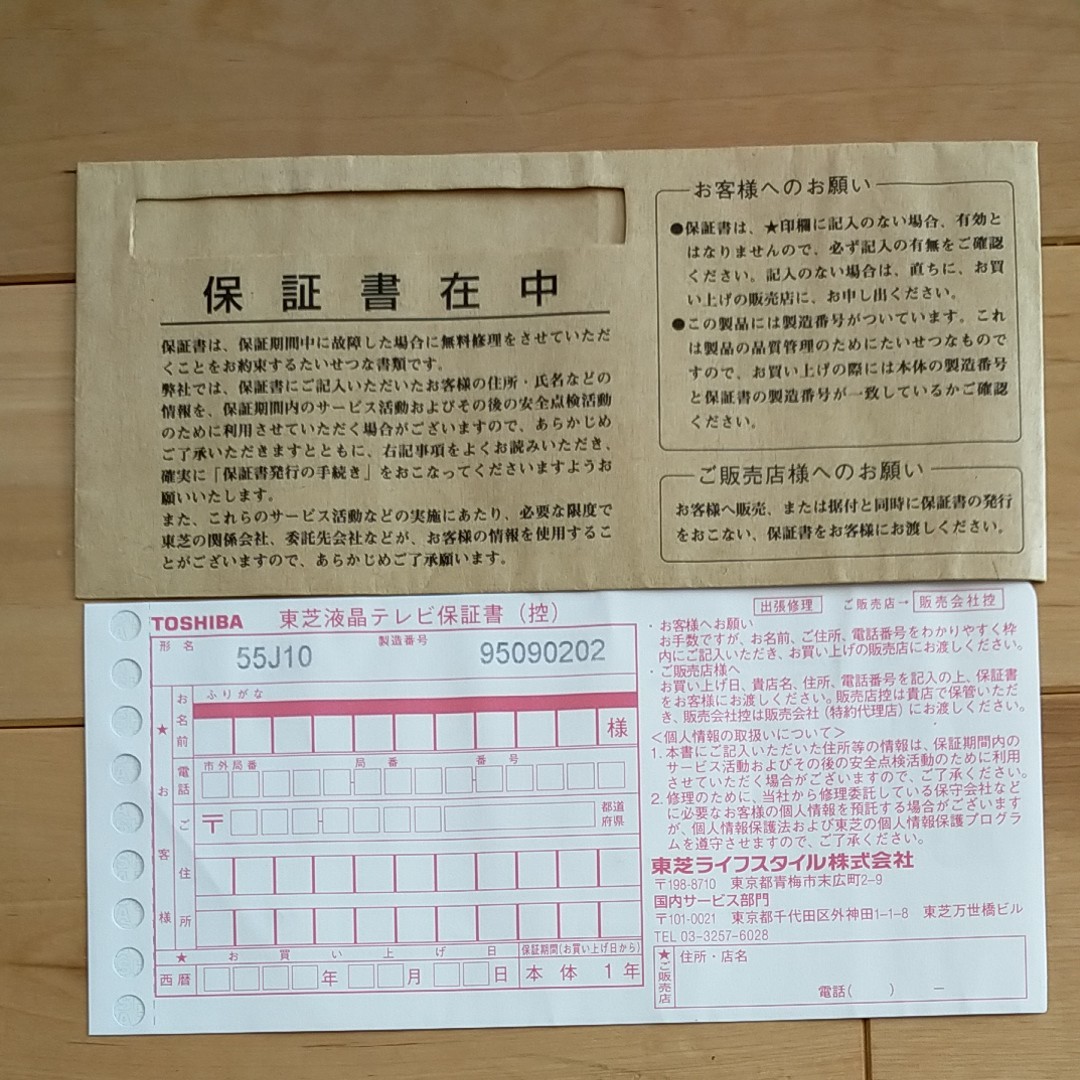 保証書在中
保証書は、保証期間中に故障した場合に無料修理をさせていただ
くことをお約束するたいせつな書類です。
弊社では、保証書にご記入いただいたお客様の住所・氏名などの
情報を、保証期間内のサービス活動およびその後の安全点検活動
のために利用させていただく場合がございますので、あらかじめ
ご了承いただきますとともに、右記事項をよくお読みいただき、
確実に「保証書発行の手続き」をおこなってくださいますようお
願いいたします。
また、これらのサービス活動などの実施にあたり、必要な限度で
東芝の関係会社、委託先会社などが、お客様の情報を使用するこ
とがございますので、あらかじめご了承願います。
お客様へのお願い
●保証書は、★印欄に記入のない場合、有効と
はなりませんので、必ず記入の有無をご確認
ください。記入のない場合は、直ちに、お買
い上げの販売店に、お申し出ください。
●この製品には製造番号がついています。これ
は製品の品質管理のためにたいせつなもので
すので、お買い上げの際には本体の製造番号
と保証書の製造番号が一致しているかご確認
ください。
ご販売店様へのお願い
お客様へ販売、または据付と同時に保証書の発行
をおこない、保証書をお客様にお渡しください。
TOSHIBA 東芝液晶テレビ保証書（控）
形名 55J10 製造番号 95090202
★お客様
お名前 ふりがな
様
電話 市外局番 局番 番号
ご住所 〒 都道府県
★お買い上げ日 保証期間(お買い上げ日から)
西暦 年 月 日 本体 1年
出張修理 ご販売店→販売会社控
・お客様へお願い
お手数ですが、お名前、ご住所、電話番号をわかりやすく枠
内にご記入いただき、お買い上げの販売店にお渡しください。
・ご販売店様へ
お買い上げ日、貴店名、住所、電話番号を記入の上、保証書
をお客様にお渡しください。販売店控は貴店で保管いただ
き、販売会社控は販売会社（特約代理店）にお渡しください。
＜個人情報の取扱いについて＞
1. 本書にご記入いただいた住所等の情報は、保証期間内の
サービス活動およびその後の安全点検活動のために利用
させていただく場合がございますので、ご了承ください。
2. 修理のために、当社から修理委託している保守会社など
に必要なお客様の個人情報を預託する場合がございます
が、個人情報保護法および東芝の個人情報保護プログラ
ムを遵守させますので、ご了承ください。
東芝ライフスタイル株式会社
〒198-8710 東京都青梅市末広町2-9
国内サービス部門
〒101-0021 東京都千代田区外神田1-1-8 東芝万世橋ビル
TEL 03-3257-6028
★ご販売店 住所・店名
電話( ) －